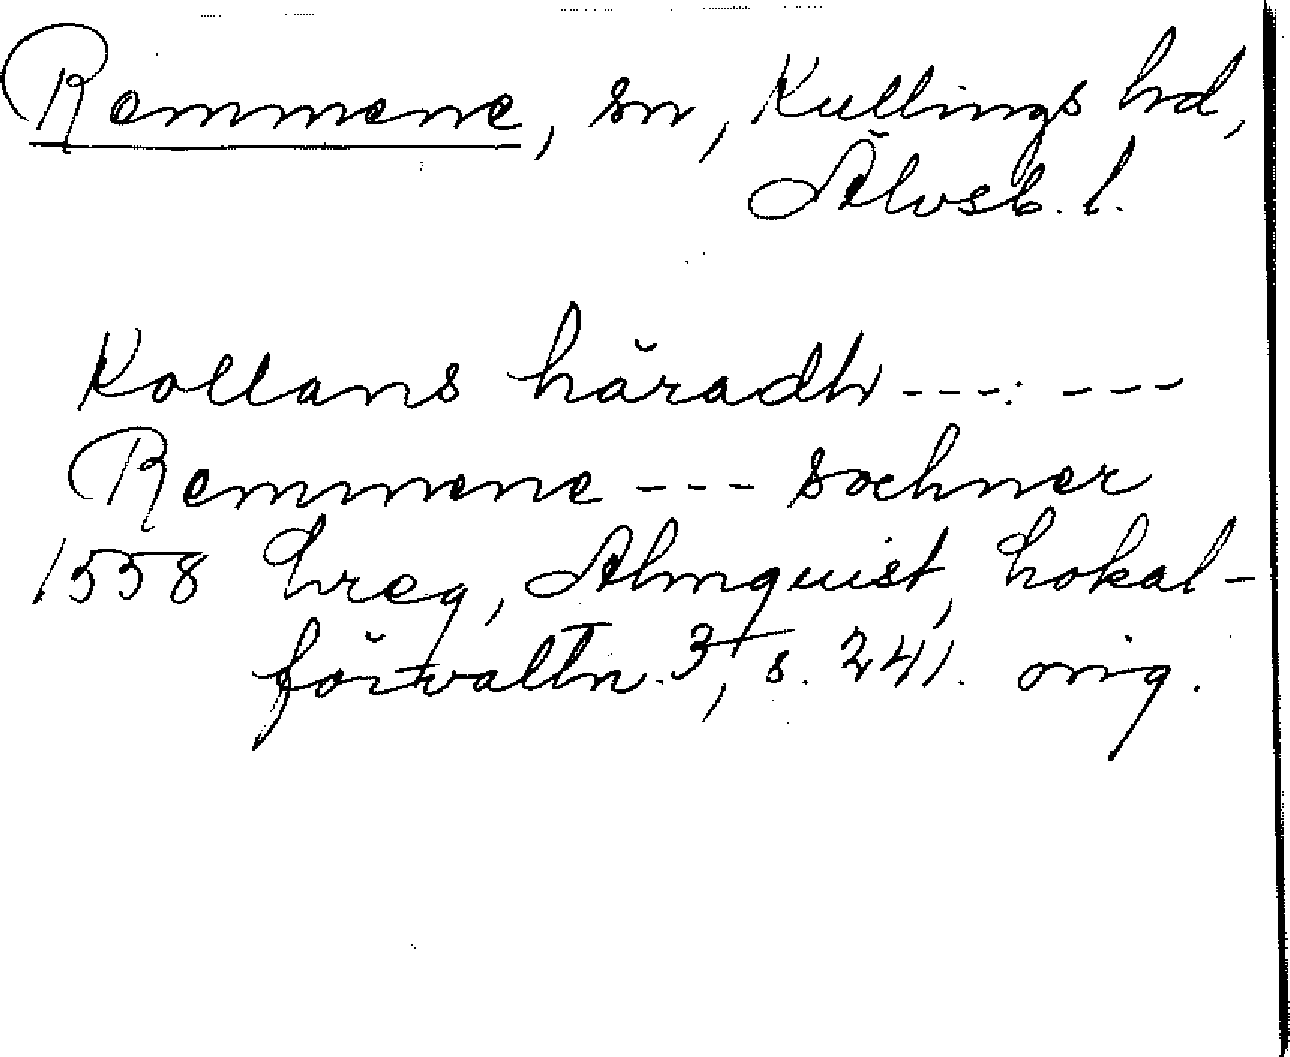 Remmene, sn, Kullings hd,
Älvsb. l.
Kollans häradh ---: ---
Remmene --- sochner
1558 Lreg, Almquist, Lokal-
förvaltn. 3, s. 241. orig.